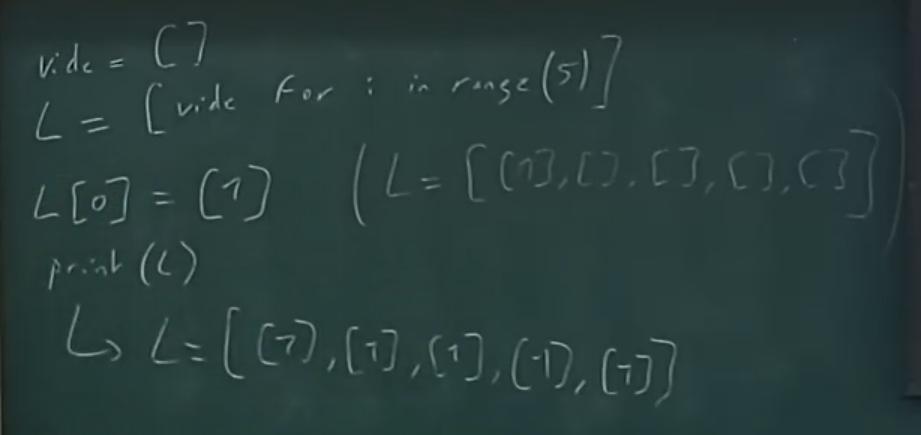 vide = []
L = [vide for i in range(5)]
L[0] = [1] (L = [[1], [], [], [], []])
print(L)
↳ L = [[1], [1], [1], [1], [1]]